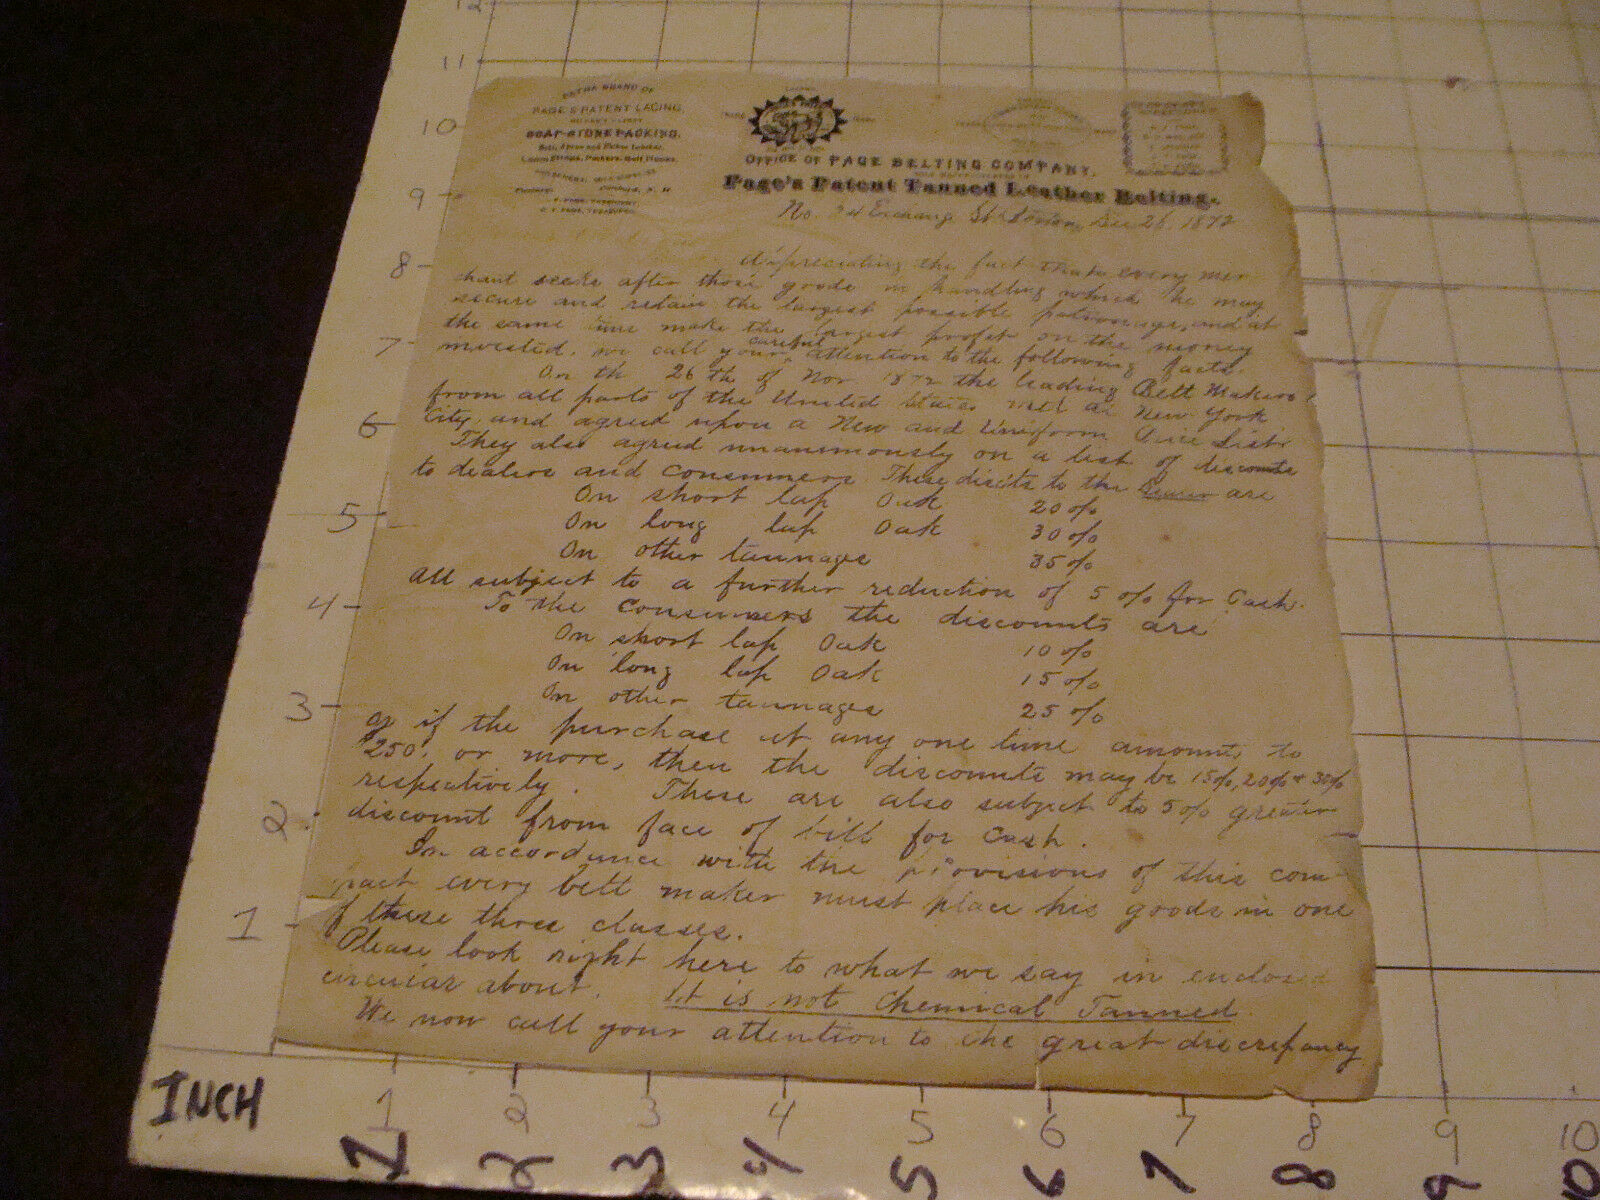 EXTRA BRAND OF
PAGE'S PATENT LACING,
SOAP-STONE PACKING,
OFFICE OF PAGE BELTING COMPANY,
Page's Patent Tanned Leather Belting.
No. 24 Exchang St Boston, Dec 26, 1872
Appreciating the fact that every mer
chant seeks after those goods in handling which he may
secure and retain the largest possible patronage, and at
the same time make the largest profit on the money
invested, we call your careful attention to the following facts.
On th 26th of Nov 1872 the leading Belt Makers
from all parts of the United States met at New York
City, and agreed upon a New and Uniform Price List
They also agreed unanimously on a list of discounts
to dealers and consumers These discts to the are
On short lap Oak 20%
On long lap Oak 30%
On other tannages 35%
All subject to a further reduction of 5% for Cash.
To the consumers the discounts are
On short lap Oak 10%
On long lap Oak 15%
On other tannages 25%
if the purchase at any one time amounts to
250. or more, then the discounts may be 15%, 20% & 30%
respectively. These are also subject to 5% greater
discount from face of bill for Cash.
In accordance with the provisions of this com-
pact every belt maker must place his goods in one
f these three classes.
Please look right here to what we say in enclosed
circular about. It is not Chemical Tanned.
We now call your attention to the great discrepancy
12
11
10
9
8
7
6
5
4
3
2
1
INCH
1 2 3 4 5 6 7 8 9 10
1 2 3 4 5 6 7 8 9 10